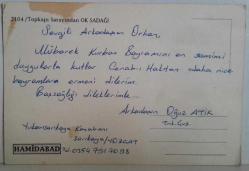 2104/Topkapı Sarayından OK SADAĞI
Sevgili Arkadaşım Orhan,
Mübarek Kurban Bayramını en samimi
duygularla kutlar Cenabı Haktan daha nice
bayramlara ermeni dilerim.
Başsağlığı dileklerimle..
Arkadaşın Oğuz ATİK
Yukarısarıkaya Kasabası
Sarıkaya/YOZGAT
HAMİDABAD